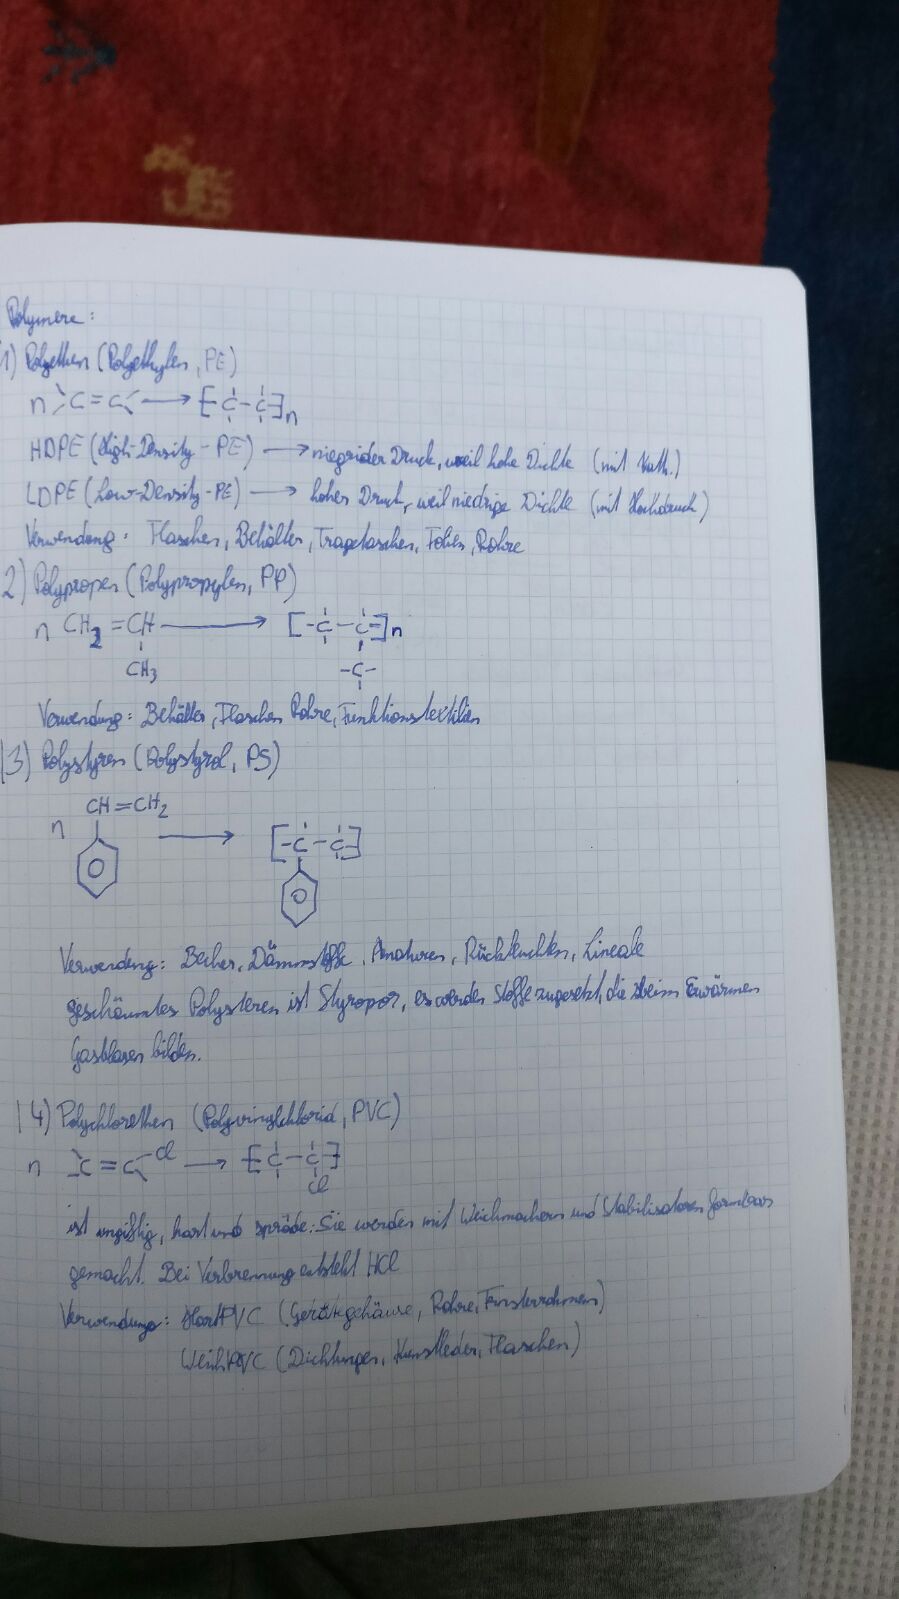 Polymere:
1) Polyethen (Polyethylen, PE)
n >C=C< → [-C-C-]n
HDPE (High-Density-PE) → niegrider Druck, weil hohe Dichte (mit Kath.)
LDPE (Low-Density-PE) → hoher Druck, weil niedrige Dichte (mit Hochdruck)
Verwendung: Flaschen, Behälter, Tragetaschen, Folien, Rohre
2) Polypropen (Polypropylen, PP)
n CH2=CH → [-C-C-]n
CH3 -C-
Verwendung: Behälter, Flaschen Rohre, Funktionstextilien
3) Polystyren (Polystyrol, PS)
CH=CH2
n → [-C-C-]
Verwendung: Becher, Dämmstoffe, Rückleuchten, Lineale
geschäumtes Polysteren ist Styropor, es werden Stoffe zugesetzt, die beim Erwärmen
Gasblasen bilden.
4) Polychlorethen (Polyvinylchlorid, PVC)
n >C=C-Cl → [-C-C-]
Cl
ist ungiftig, hart und spröde: Sie werden mit Weichmachern und Stabilisatoren formbar
gemacht. Bei Verbrennung entsteht HCl
Verwendung: HartPVC (Gerätegehäuse, Rohre, Fensterrahmen)
WeichPVC (Dichtungen, Kunstleder, Flaschen)